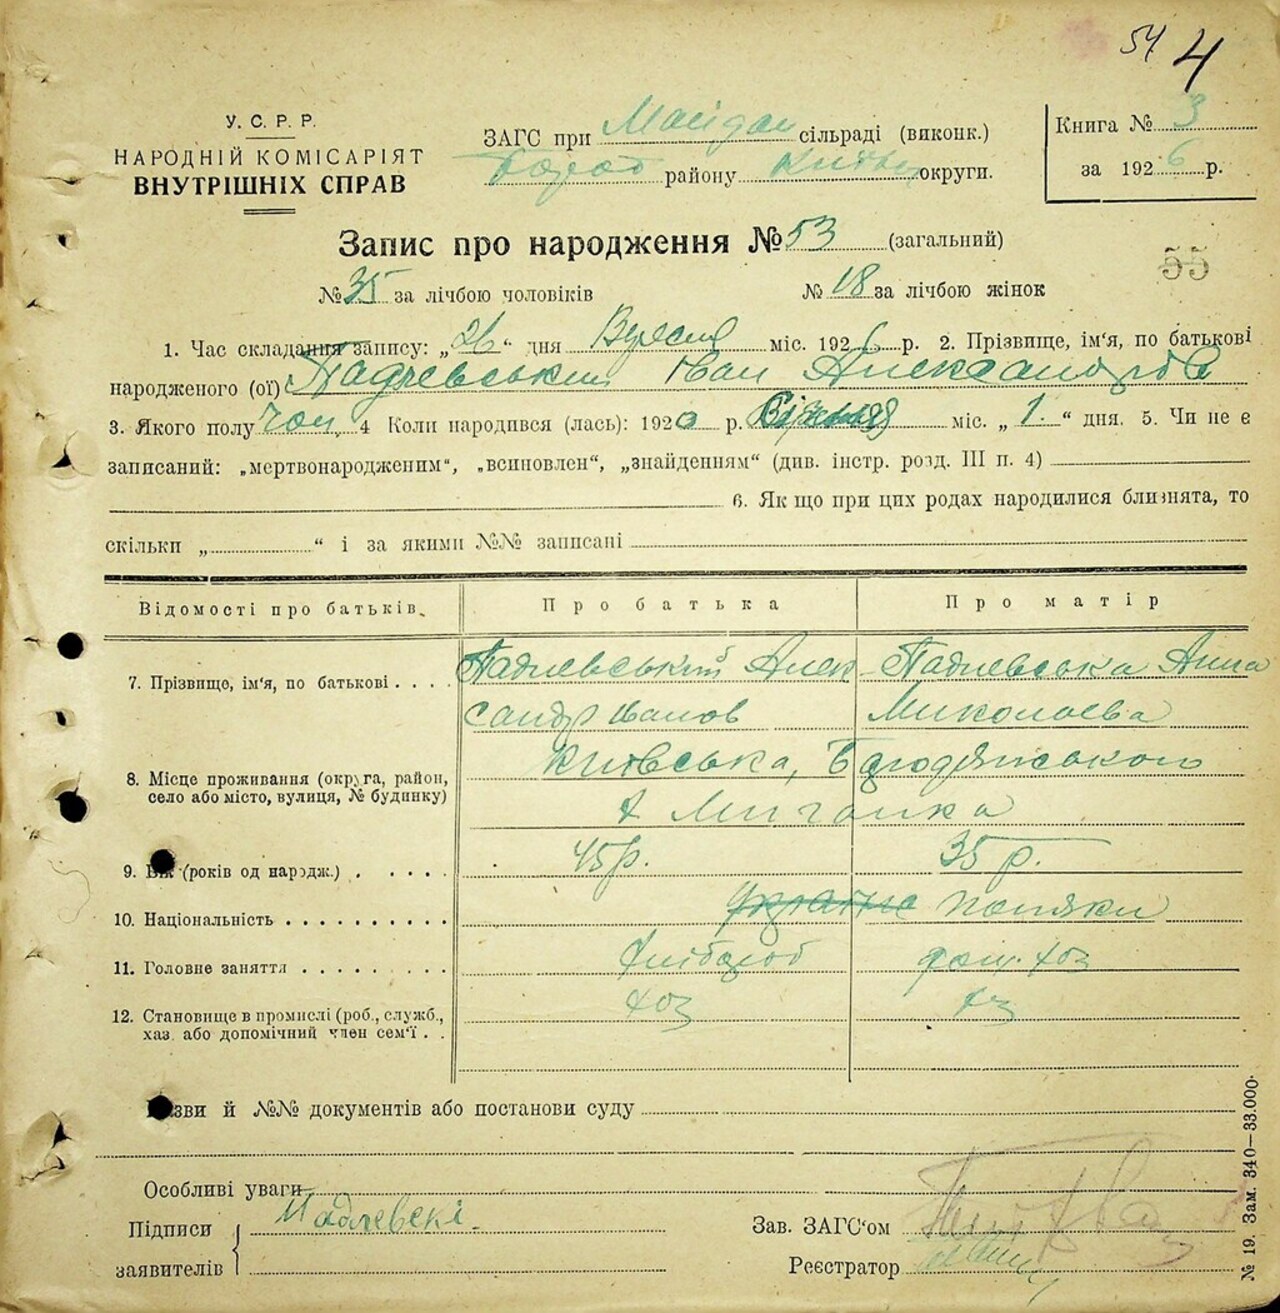 54 4
У. С. Р. Р.
НАРОДНІЙ КОМІСАРІЯТ
ВНУТРІШНІХ СПРАВ
ЗАГС при Майдан сільраді (виконк.)
району округи.
Книга № 3
за 1926 р.
Запис про народження № 53 (загальний)
55
№ 35 за лічбою чоловіків № 18 за лічбою жінок
1. Час складання запису: „26“ дня Вересня міс. 1926 р. 2. Прізвище, ім'я, по батькові
народженого (ої) Падлевський Іван Александров
3. Якого полу чол. 4 Коли народився (лась): 192 р. міс. „1.“ дня. 5. Чи не є
записаний: „мертвонародженим“, „всиновлен“, „знайденням“ (див. інстр. розд. III п. 4)
6. Як що при цих родах народилися близнята, то
скільки „ “ і за якими №№ записані
Відомості про батьків. Про батька Про матір
7. Прізвище, ім'я, по батькові . . . . Падлевський Алек Падлевська Анна
сандр Іванов Миколаєва
8. Місце проживання (округа, район, село або місто, вулиця, № будинку) Київська, Бородянського
х Мигалка
9. Вік (років од народж.) . . . . . 45 р. 35 р.
10. Національність . . . . . . . . . поляки
11. Головне заняття . . . . . . . . Хлібороб дом. хоз
12. Становище в промислі (роб., служб., хаз. або допомічний член сем'ї . . хоз хз
Назви й №№ документів або постанови суду
Особливі уваги
Підписи
заявителів
Падлевскі.
Зав. ЗАГС'ом
Реєстратор
№ 19. Зам. 340—33.000.